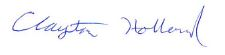 Clayton Holland